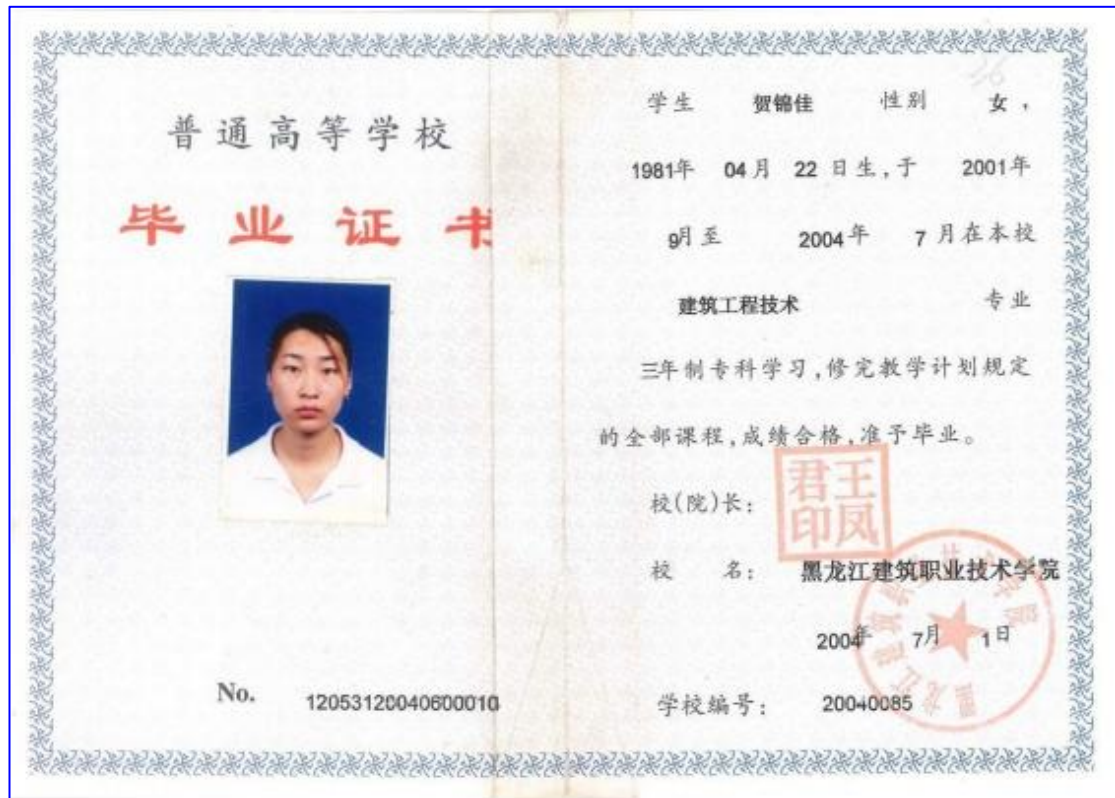 普通高等学校
毕业证书
No. 12053120040600010
学生 贺锦佳 性别 女，
1981年 04月 22日生，于 2001年
9月至 2004年 7月在本校
建筑工程技术 专业
三年制专科学习，修完教学计划规定
的全部课程，成绩合格，准予毕业。
校(院)长：
王凤君印
校 名： 黑龙江建筑职业技术学院
2004年 7月 1日
学校编号： 20040085
黑龙江建筑职业技术学院